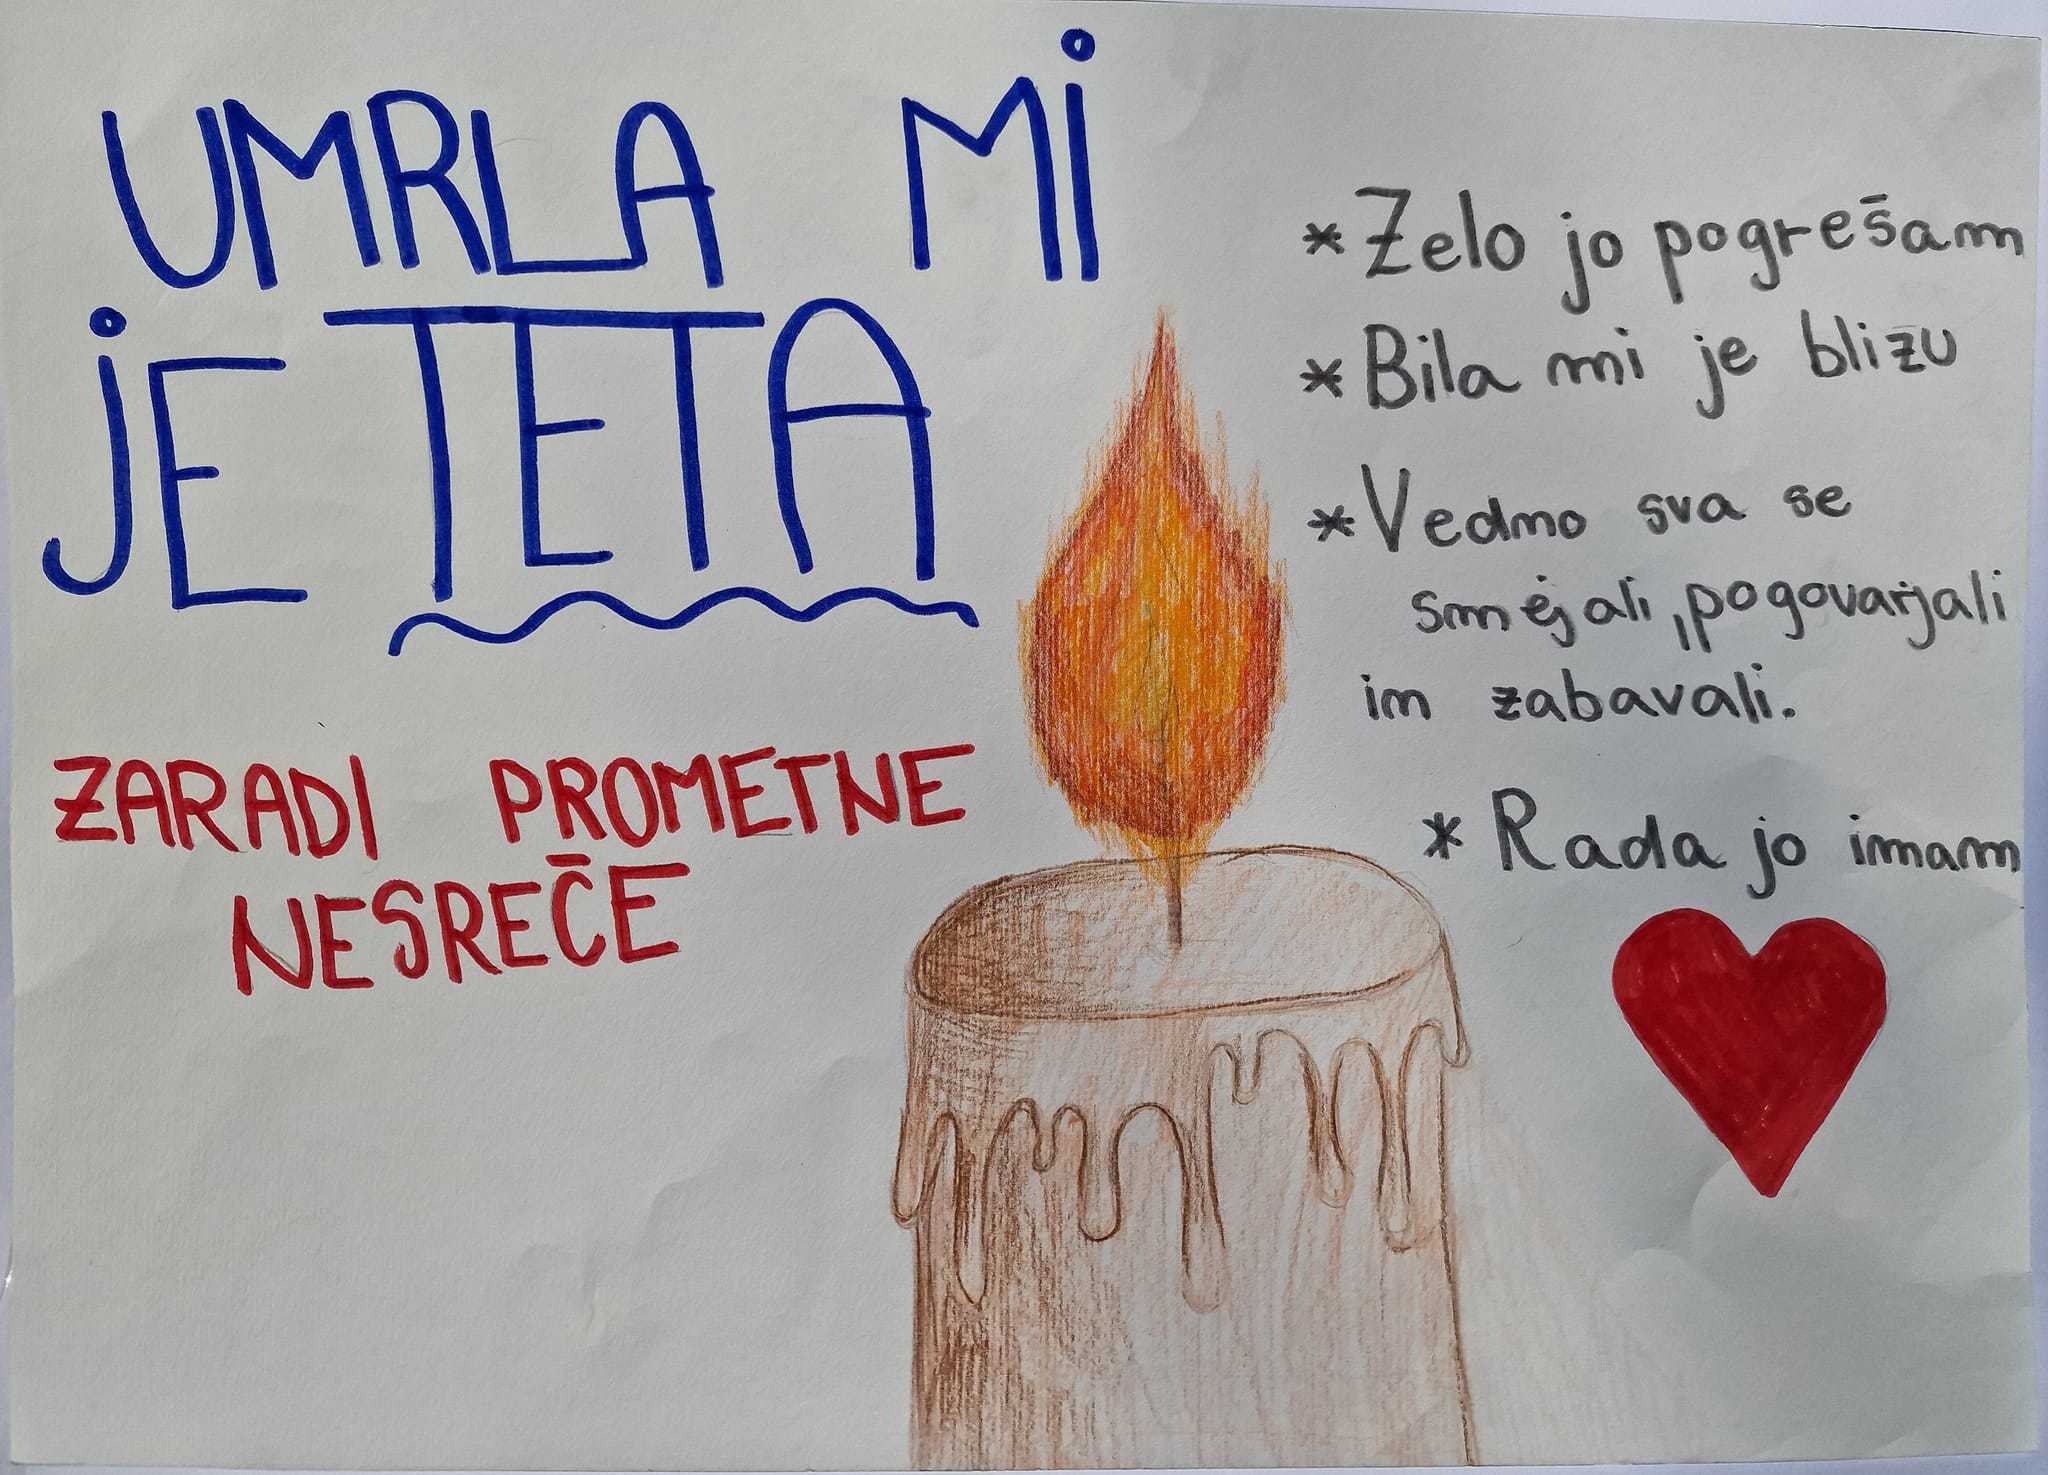 UMRLA MI
JE TETA
ZARADI PROMETNE
NESREČE
*Zelo jo pogrešam
*Bila mi je blizu
*Vedno sva se
smejali, pogovarjali
in zabavali.
*Rada jo imam